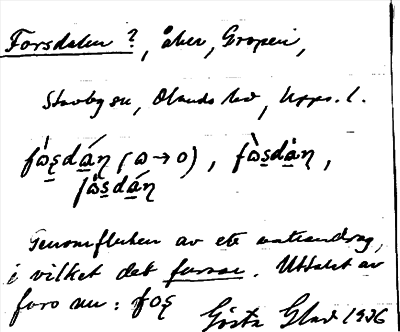 Forsdalen ?, åker, Gropen,
Stavby sn, Olands hd, Upps. l.
fɷ̀ʂdáņ (ɷ→o), fɷ̀ʂdàņ,
fɷ̀ʂdáņ
Genomfluten av ett vattendrag,
i vilket det forsar. Uttalet av
fors nu: foʂ
Gösta Glad 1936